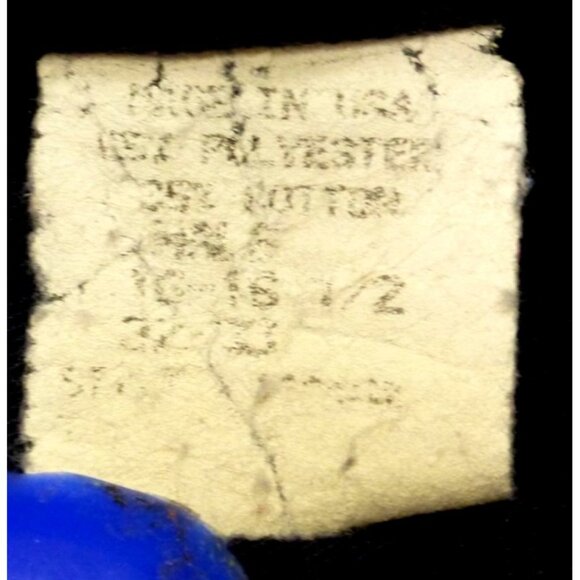 MADE IN USA
65% POLYESTER
35% COTTON
16-16 1/2
32-33